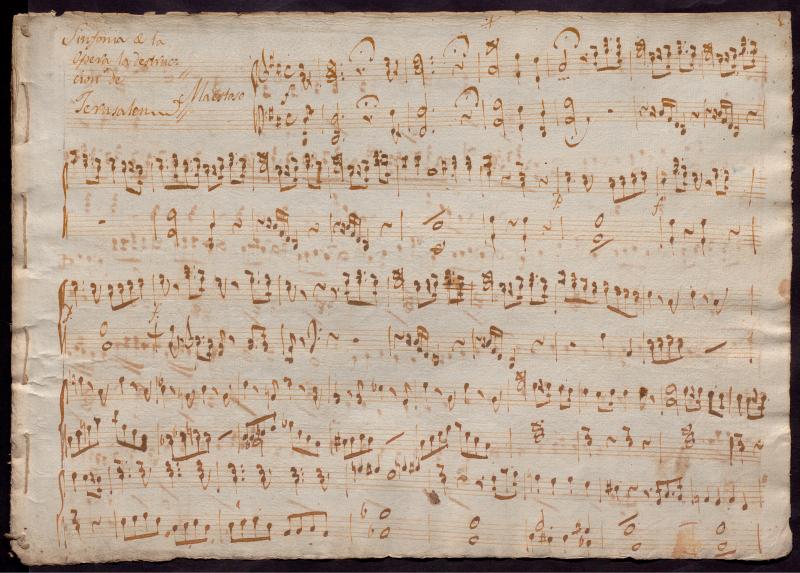 Sinfonia de la
Opera la destruc-
cion de
Jerusalem
Maestoso